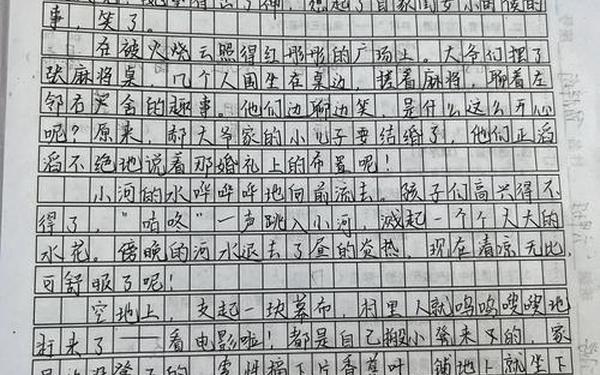 事，笑了。
在被火烧云照得红彤彤的广场上。大爷们摆了
张麻将桌，几个人围坐在桌边，搓着麻将，聊着左
邻右舍的趣事。他们边聊边笑，是什么这么开心
呢？原来，郝大爷家的小儿子要结婚了，他们正滔
滔不绝地说着那婚礼上的布置呢！
小河的水哗哗哗地向前流去。孩子们高兴得不
得了，"咕咚"一声跳入小河，溅起一个个大大的
水花。傍晚的河水退去了昼的炎热，现在清凉无比，
可舒服了呢！
空地上，支起一块幕布，村里人就呜呜嗖嗖地
赶来了——看电影啦！都是自己搬小凳来的，家
的，索性摘下片香蕉叶，铺地上就坐下